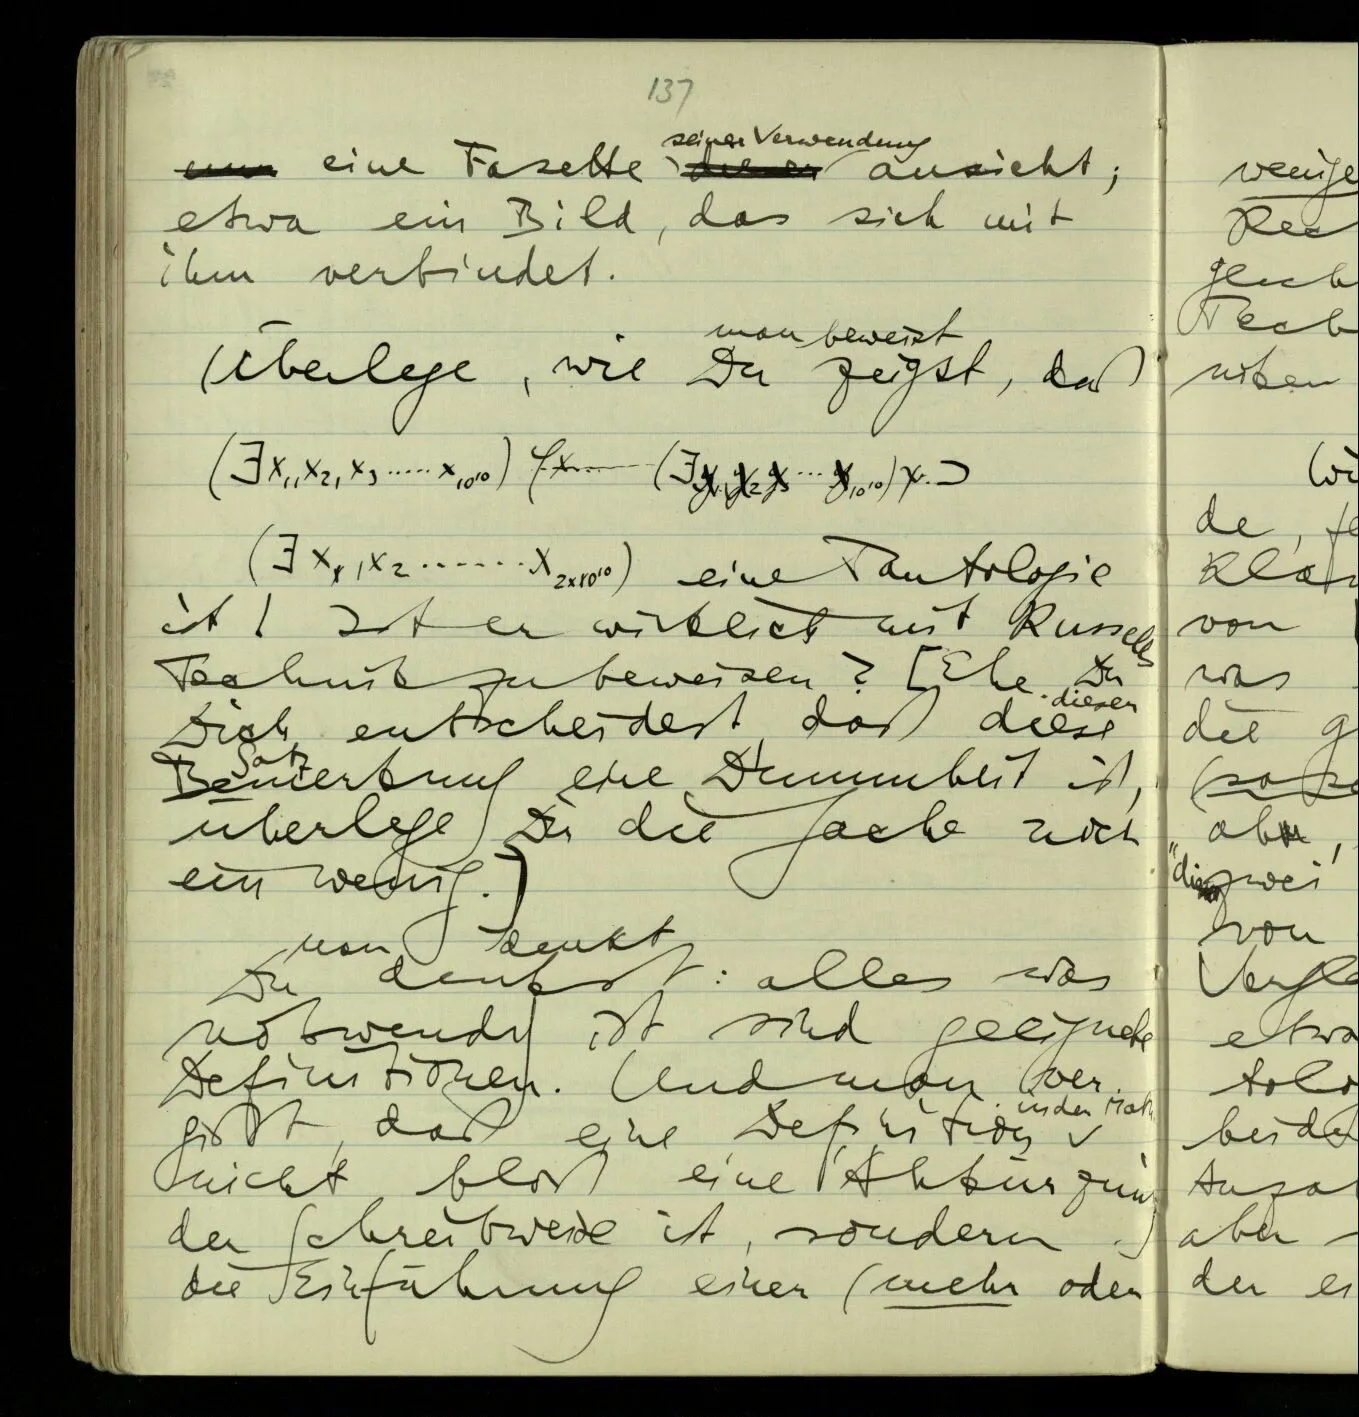 137
seiner Verwendung
eine Fazette ansieht;
etwa ein Bild, das sich mit
ihm verbindet.
man beweist
Überlege, wie Du zeigst, daß
(∃x₁,x₂,x₃.....x₁₀¹⁰) (∃y₁,y₂,y₃...y₁₀¹⁰) ⊃
(∃x₁,x₂.......x₂ₓ₁₀¹⁰) eine Tautologie
ist! Ist er wirklich mit Russells
Technik zu beweisen? [Ehe Du
diesen
Dich entscheidest daß diese
Satz
Bemerkung eine Dummheit ist,
überlege Dir die Sache noch
ein wenig.]
man denkt
Du denkst: alles was
notwendig ist sind geeignete
Definitionen. Und man ver-
in der Math.
gißt, daß eine Definition ✓
nicht bloß eine Abkürzung
der Schreibweise ist, sondern
die Einführung einer (mehr oder
wenige
Rec
gleich
Tech
de, fe
Klam
von
was
die g
(so
aber,
zwei
von
Vergle
etwa
tolo
beide
Anza
aber
der ei